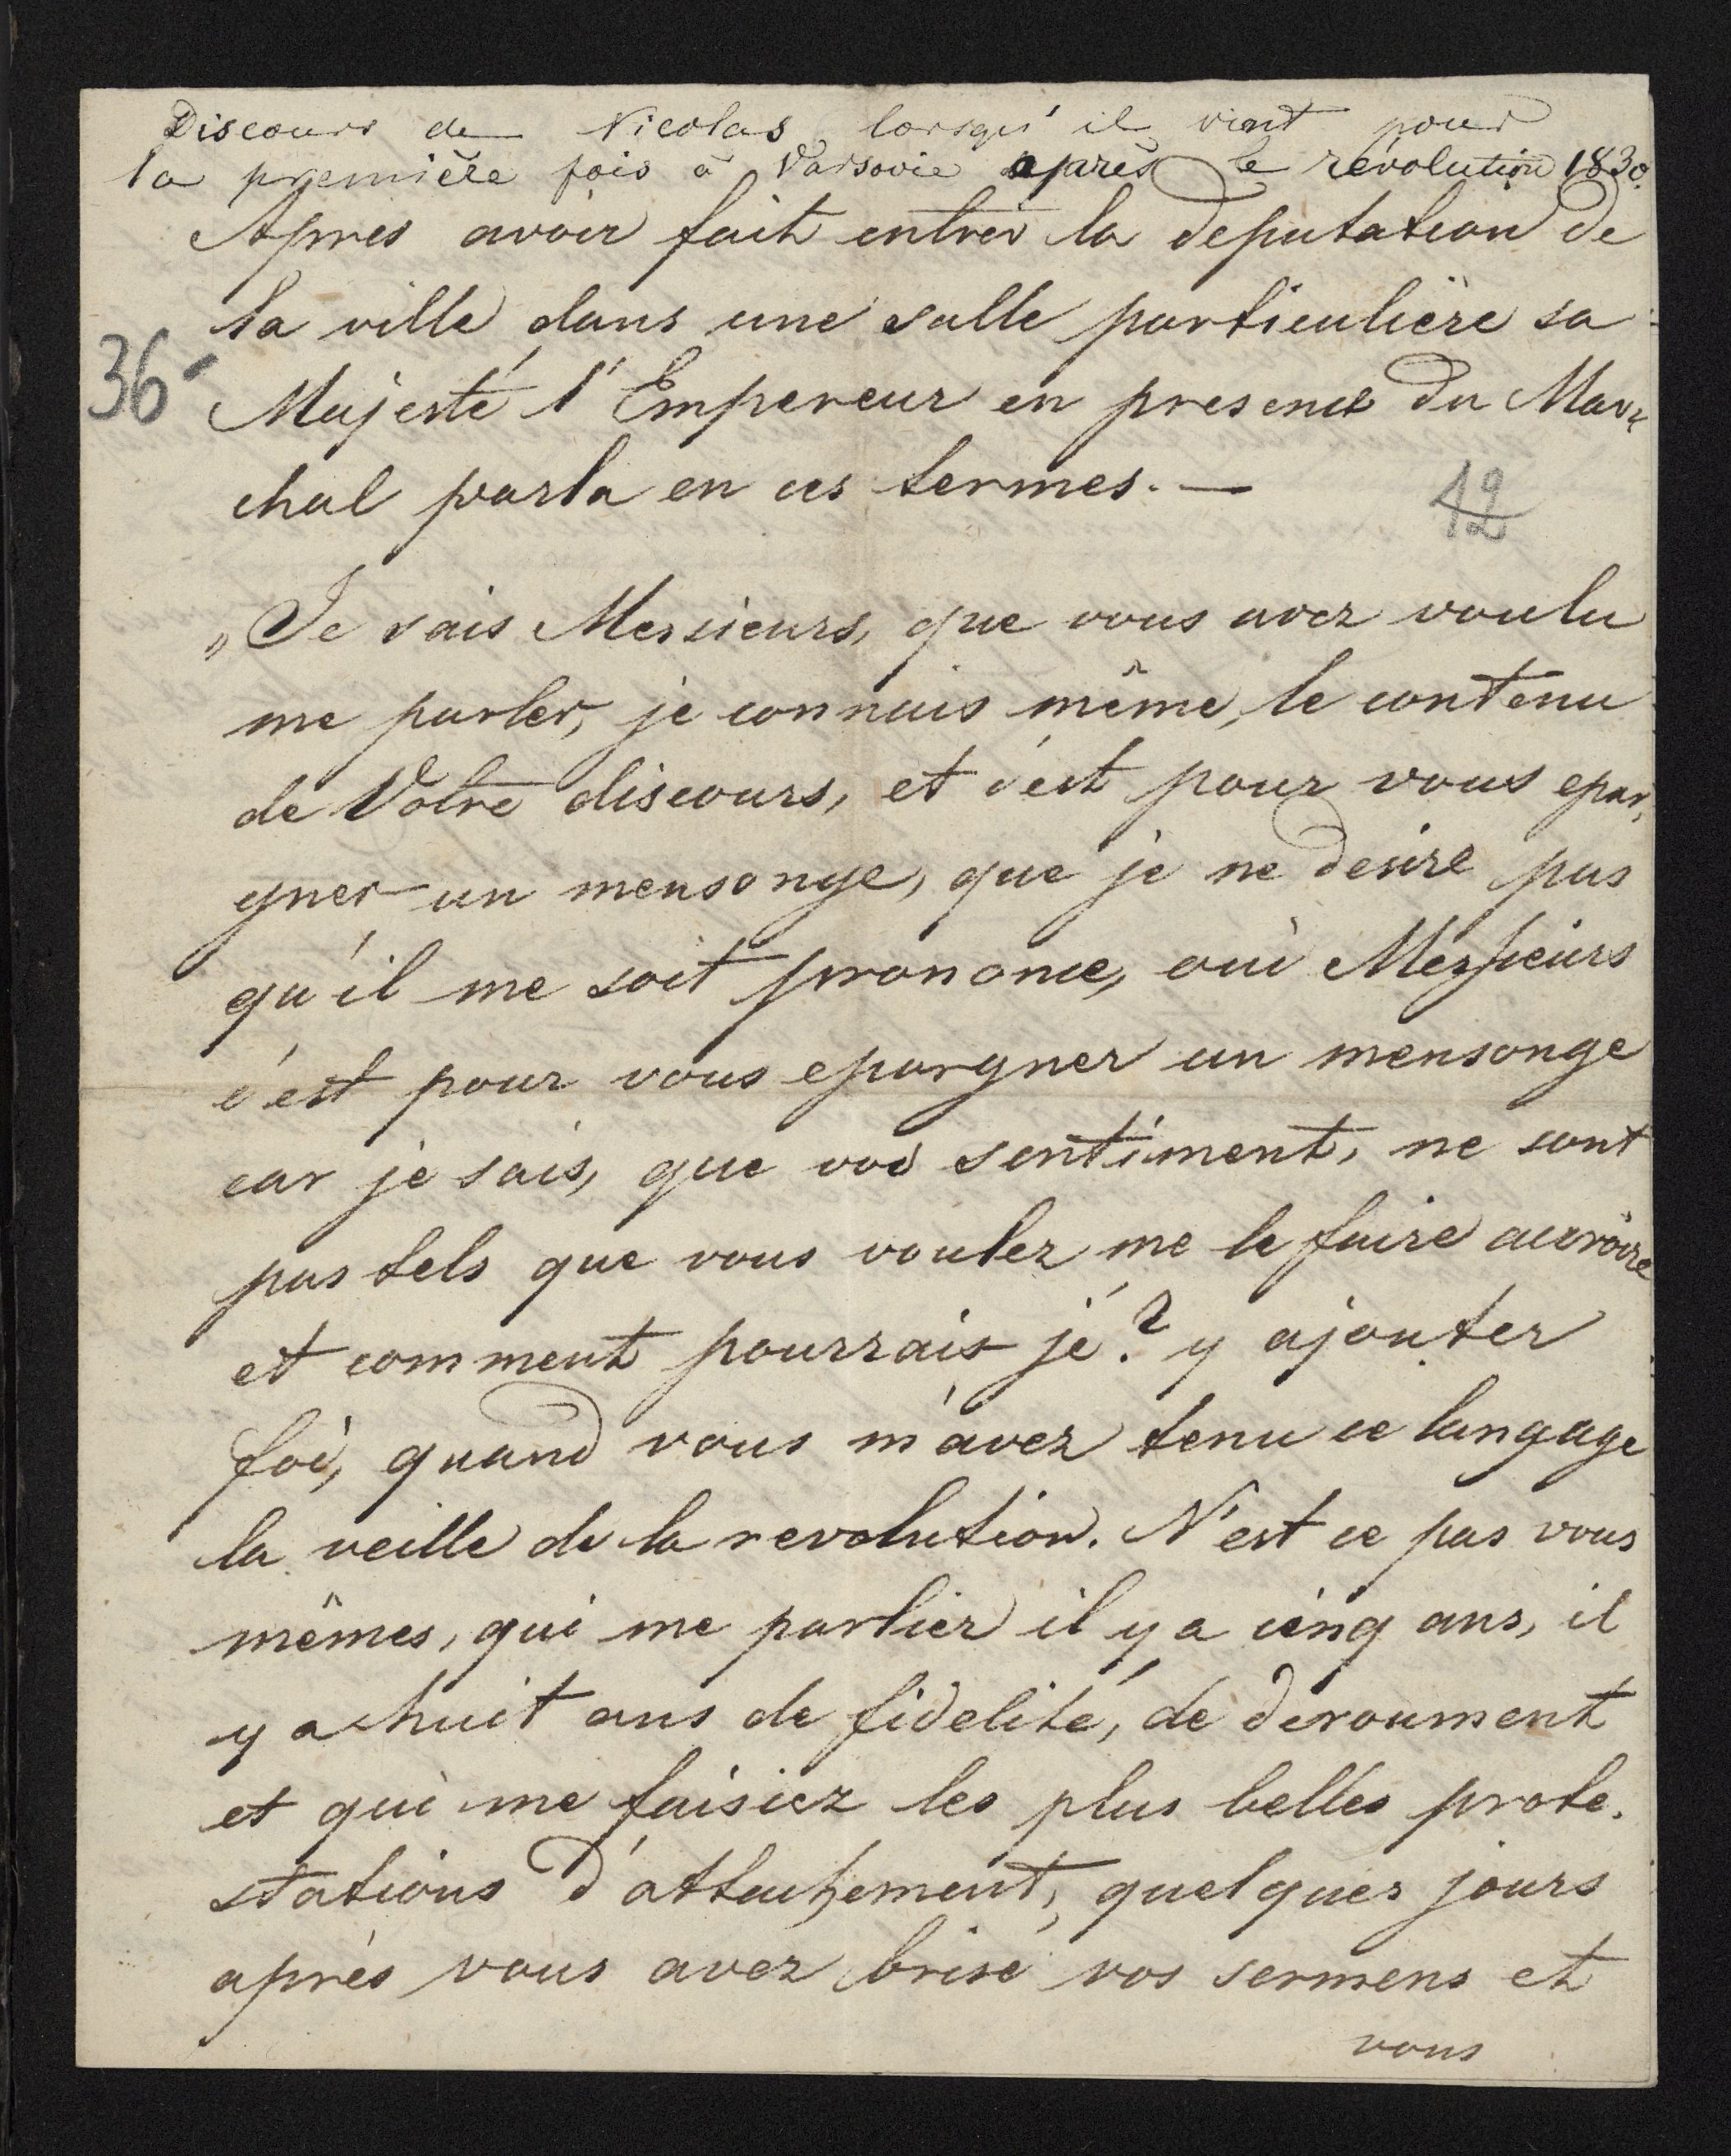 Discours de Nicolas lorsqu'il vient pour
la première fois à Varsovie après le révolution 1830.
Apres avoir fait entrer la deputation de
la ville dans une salle particulière sa
36
Majesté l'Empereur en presence du Mare
chal parla en ces termes. —
12
„Je sais Messieurs, que vous avez voulu
me parler, je connais même, le contenu
de Votre discours, et c'est pour vous epar,
gner un mensonge, que je ne desire pas
qu'il me soit prononce, oui Messieurs
c'est pour vous epargner un mensonge
car je sais, que vos sentiment, ne sont
pas tels que vous voulez me le faire accroire
et comment pourrais je? y ajouter
foi, quand vous m'avez tenu ce langage
la veille de la revolution. N'est ce pas vous
mêmes, qui me parliez il y a cinq ans, il
y a huit ans de fidelité, de devoument
et qui me faisiez les plus belles prote.
stations d'attachement, quelques jours
après vous avez brisé vos sermens et
vous